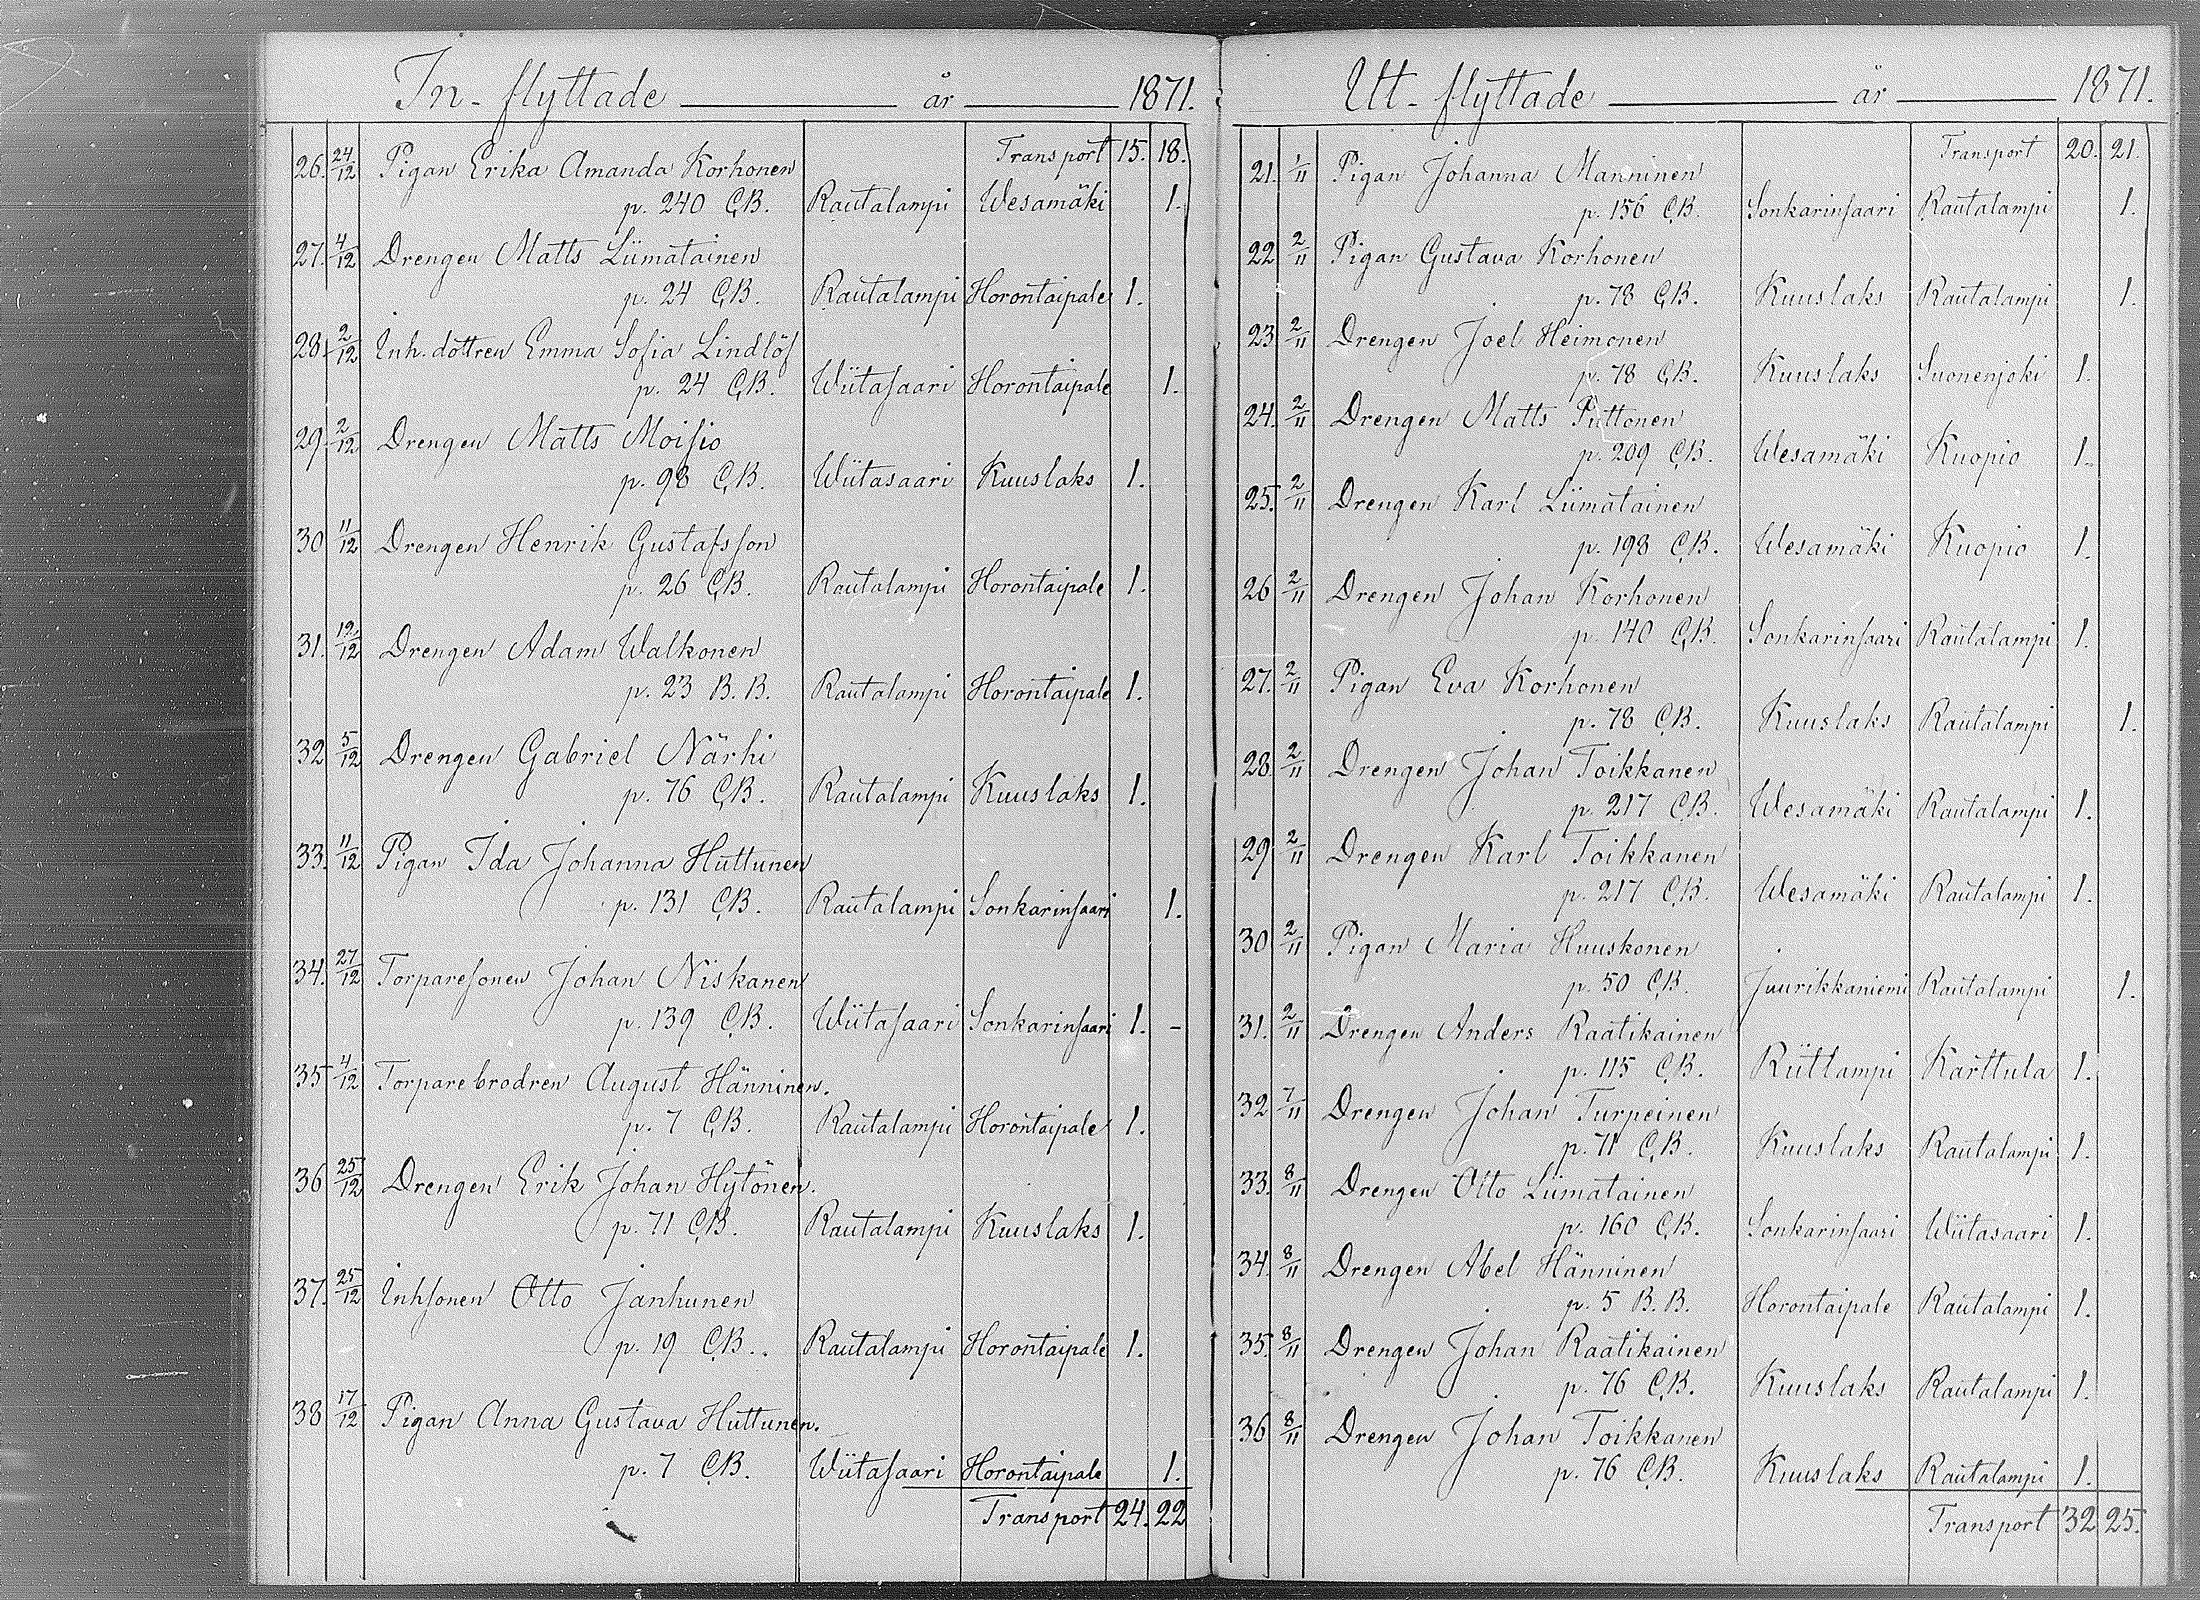 In-flyttade år 1871.
Transport 15. 18.
26. 24/12 Pigan Erika Amanda Korhonen
p. 240 C,B. Rautalampi Wesamäki 1.
27. 4/12 Drengen Matts Liimatainen
p. 24 C,B. Rautalampi Horontaipale 1.
28. 2/12 Inh. dottren Emma Sofia Lindlöf
p. 24 C,B. Wiitasaari Horontaipale 1.
29. 2/12 Drengen Matts Moisio
p. 98 C,B. Wiitasaari Kuuslaks 1.
30 11/12 Drengen Henrik Gustafsson
p. 26 C,B. Rautalampi Horontaipale 1.
31. 19/12 Drengen Adam Walkonen
p. 23 B. B. Rautalampi Horontaipale 1.
32 5/12 Drengen Gabriel Närhi
p. 76 C,B. Rautalampi Kuuslaks 1.
33. 11/12 Pigan Ida Johanna Huttunen
p. 131 C,B. Rautalampi Sonkarinsaari 1.
34. 27/12 Torparesonen Johan Niskanen
p. 139 C,B. Wiitasaari Sonkarinsaari 1. -
35 4/12 Torparebrodren August Hänninen.
p. 7 C,B. Rautalampi Horontaipale 1.
36 25/12 Drengen Erik Johan Hytönen.
p. 71 C,B. Rautalampi Kuuslaks 1.
37. 25/12 Inhsonen Otto Janhunen
p. 19 C,B.. Rautalampi Horontaipale 1.
38 17/12 Pigan Anna Gustava Huttunen.
p. 7 C,B. Wiitasaari Horontaipale 1.
Transport 24. 22
Utt-flyttade år 1871.
Transport 20. 21.
21. 1/11 Pigan Johanna Manninen
p. 156 C,B. Sonkarinsaari Rautalampi 1.
22 2/11 Pigan Gustava Korhonen
p. 78 C,B. Kuuslaks Rautalampi 1.
23 2/11 Drengen Joel Heimonen
p. 78 C,B. Kuuslaks Suonenjoki 1.
24. 2/11 Drengen Matts Puttonen
p. 209 C,B. Wesamäki Kuopio 1.
25. 2/11 Drengen Karl Liimatainen
p. 198 C,B. Wesamäki Kuopio 1.
26 2/11 Drengen Johan Korhonen
p. 140 C,B. Sonkarinsaari Rautalampi 1.
27. 2/11 Pigan Eva Korhonen
p. 78 C,B. Kuuslaks Rautalampi 1.
28. 2/11 Drengen Johan Toikkanen
p. 217 C,B. Wesamäki Rautalampi 1.
29 2/11 Drengen Karl Toikkanen
p. 217 C,B. Wesamäki Rautalampi 1.
30 2/11 Pigan Maria Huuskonen
p. 50 C,B. Juurikkaniemi Rautalampi 1.
31. 2/11 Drengen Anders Raatikainen
p. 115 C,B. Riitlampi Karttula 1.
32 7/11 Drengen Johan Turpeinen
p. 71 C,B. Kuuslaks Rautalampi 1.
33. 8/11 Drengen Otto Liimatainen
p. 160 C,B. Sonkarinsaari Wiitasaari 1.
34. 8/11 Drengen Abel Hänninen
p. 5 B. B. Horontaipale Rautalampi 1.
35. 8/11 Drengen Johan Raatikainen
p. 76 C,B. Kuuslaks Rautalampi 1.
36 8/11 Drengen Johan Toikkanen
p. 76 C,B. Kuuslaks Rautalampi 1.
Transport 32 25.